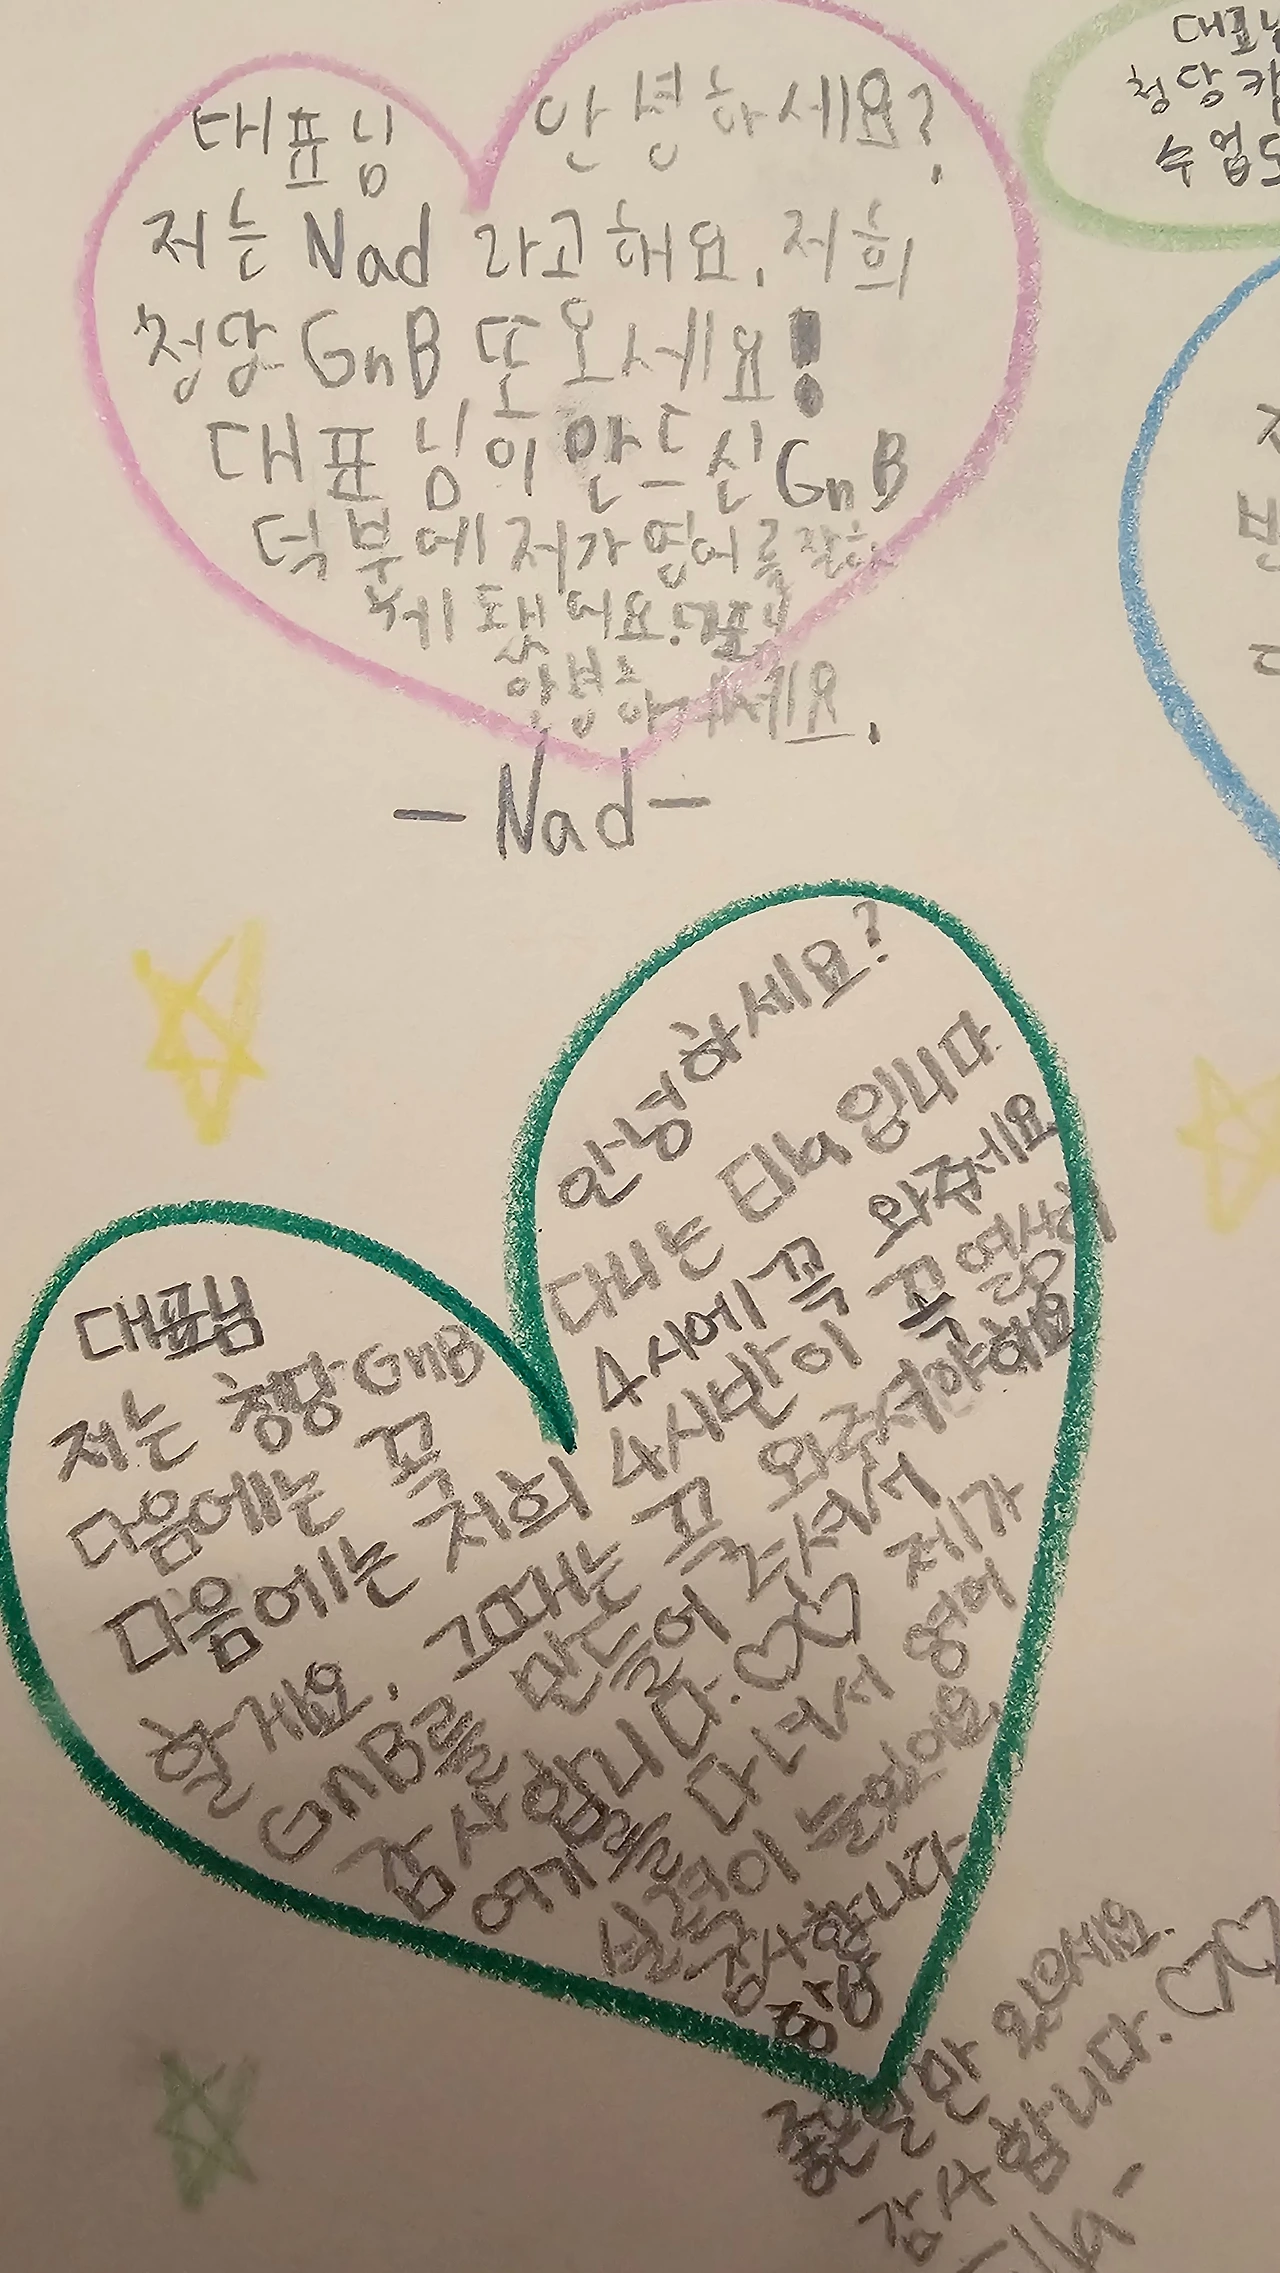 대표님 안녕하세요?
저는 Nad 라고해요. 저희
청담 GnB 또 오세요!
대표님이 만드신 GnB
덕분에 저가 영어를 잘하
게 됐어요. 대표님
안녕하 계세요.
-Nad-
대표님 안녕하세요?
저는 청담 GnB 다니는 Ella 입니다
다음에는 꼭 4시에 꼭 와주세요
다음에는 저희 4시반이 꼭 열심히
할게요. 그때는 꼭 와주셔야해요
GnB를 만들어 주셔서
감사합니다. ♡♡ 제가
여기를 다녀서 영어
실력이 늘었어요.
감사합니다
항상
좋은일만 있으세요.
감사합니다. ♡♡
Ella-
대표님
청담캠
수업도